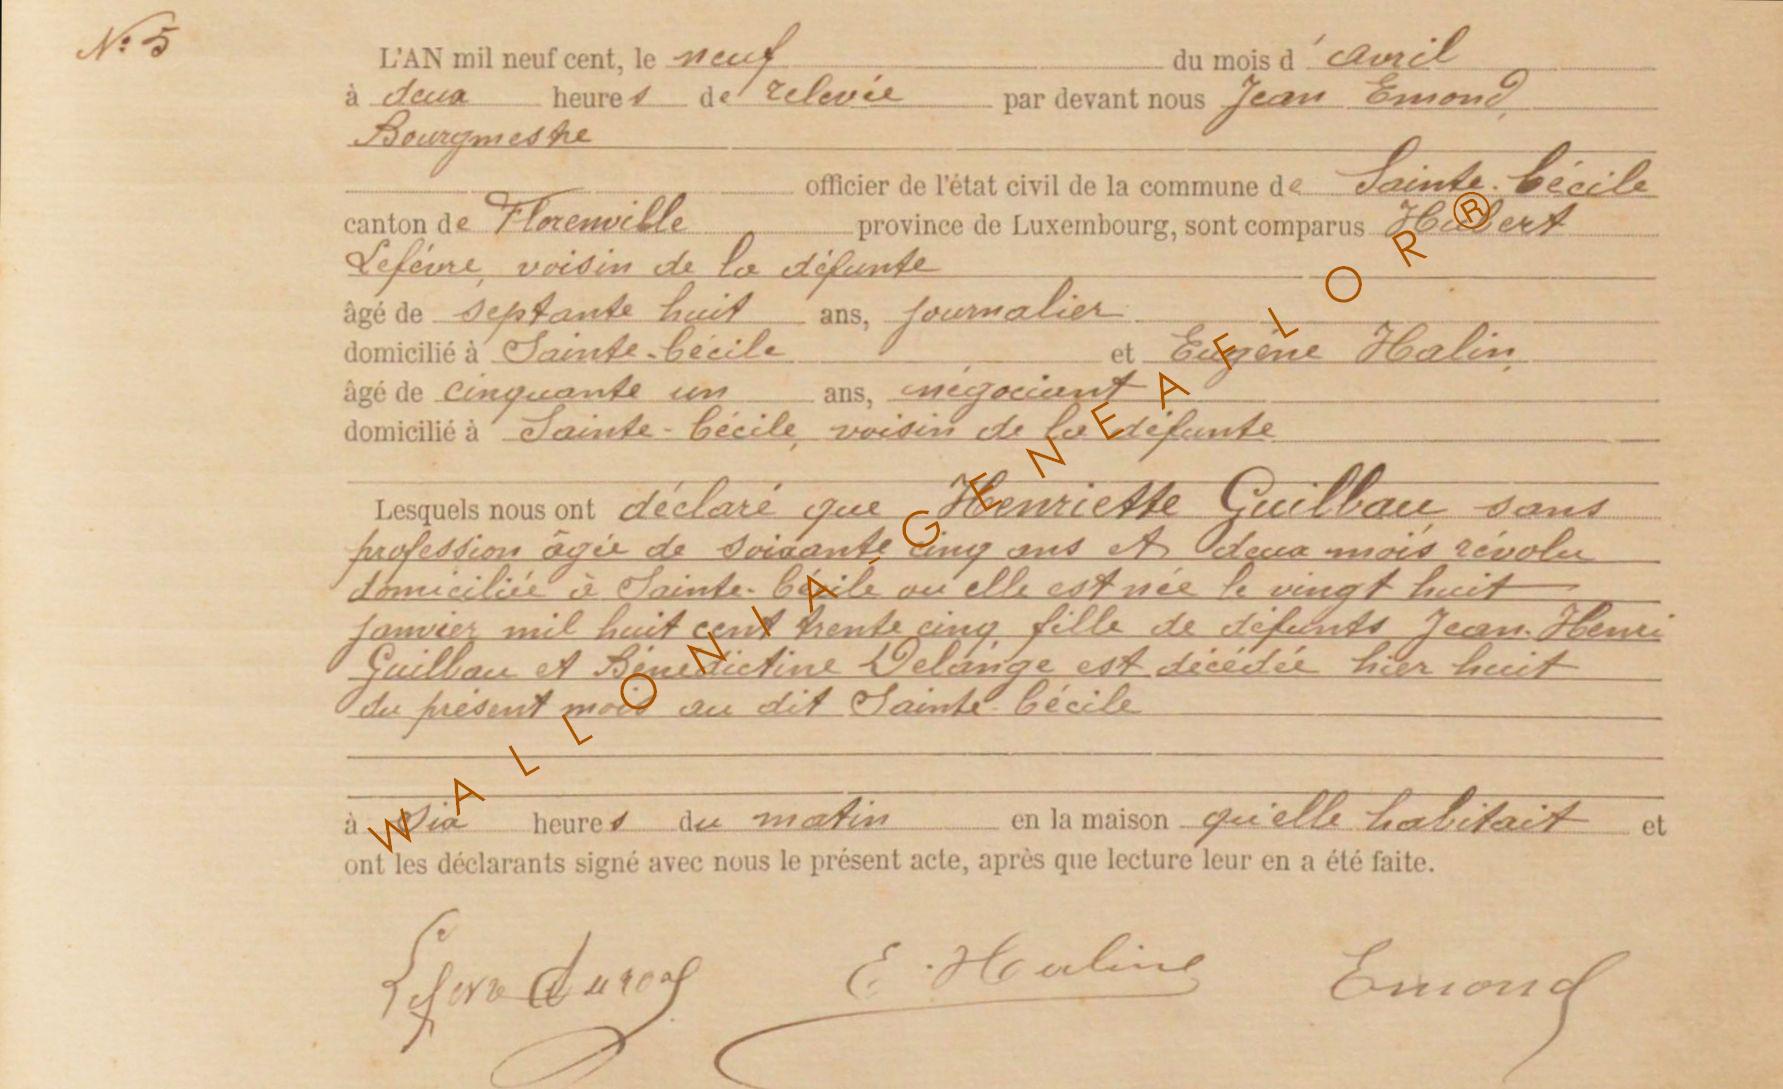 N° 5
L'AN mil neuf cent, le neuf du mois d'avril
à deux heures de relevée par devant nous Jean Emond,
Bourgmestre
officier de l'état civil de la commune de Sainte-Cécile
canton de Florenville province de Luxembourg, sont comparus Hubert
Lefèvre, voisin de la défunte
âgé de septante huit ans, journalier
domicilié à Sainte-Cécile et Eugène Halin,
âgé de cinquante un ans, négociant
domicilié à Sainte-Cécile, voisin de la défunte
Lesquels nous ont déclaré que Henriette Guilbau, sans
profession âgée de soixante cinq ans et deux mois révolu
domiciliée à Sainte-Cécile ou elle est née le vingt huit
janvier mil huit cent trente cinq fille de défunts Jean-Henri
Guilbau et Bénédictine Delange est décédée hier huit
du présent mois au dit Sainte-Cécile
à six heures du matin en la maison qu'elle habitait et
ont les déclarants signé avec nous le présent acte, après que lecture leur en a été faite.
E. Haline Emond
WALLONIA-GENEAFLOR®